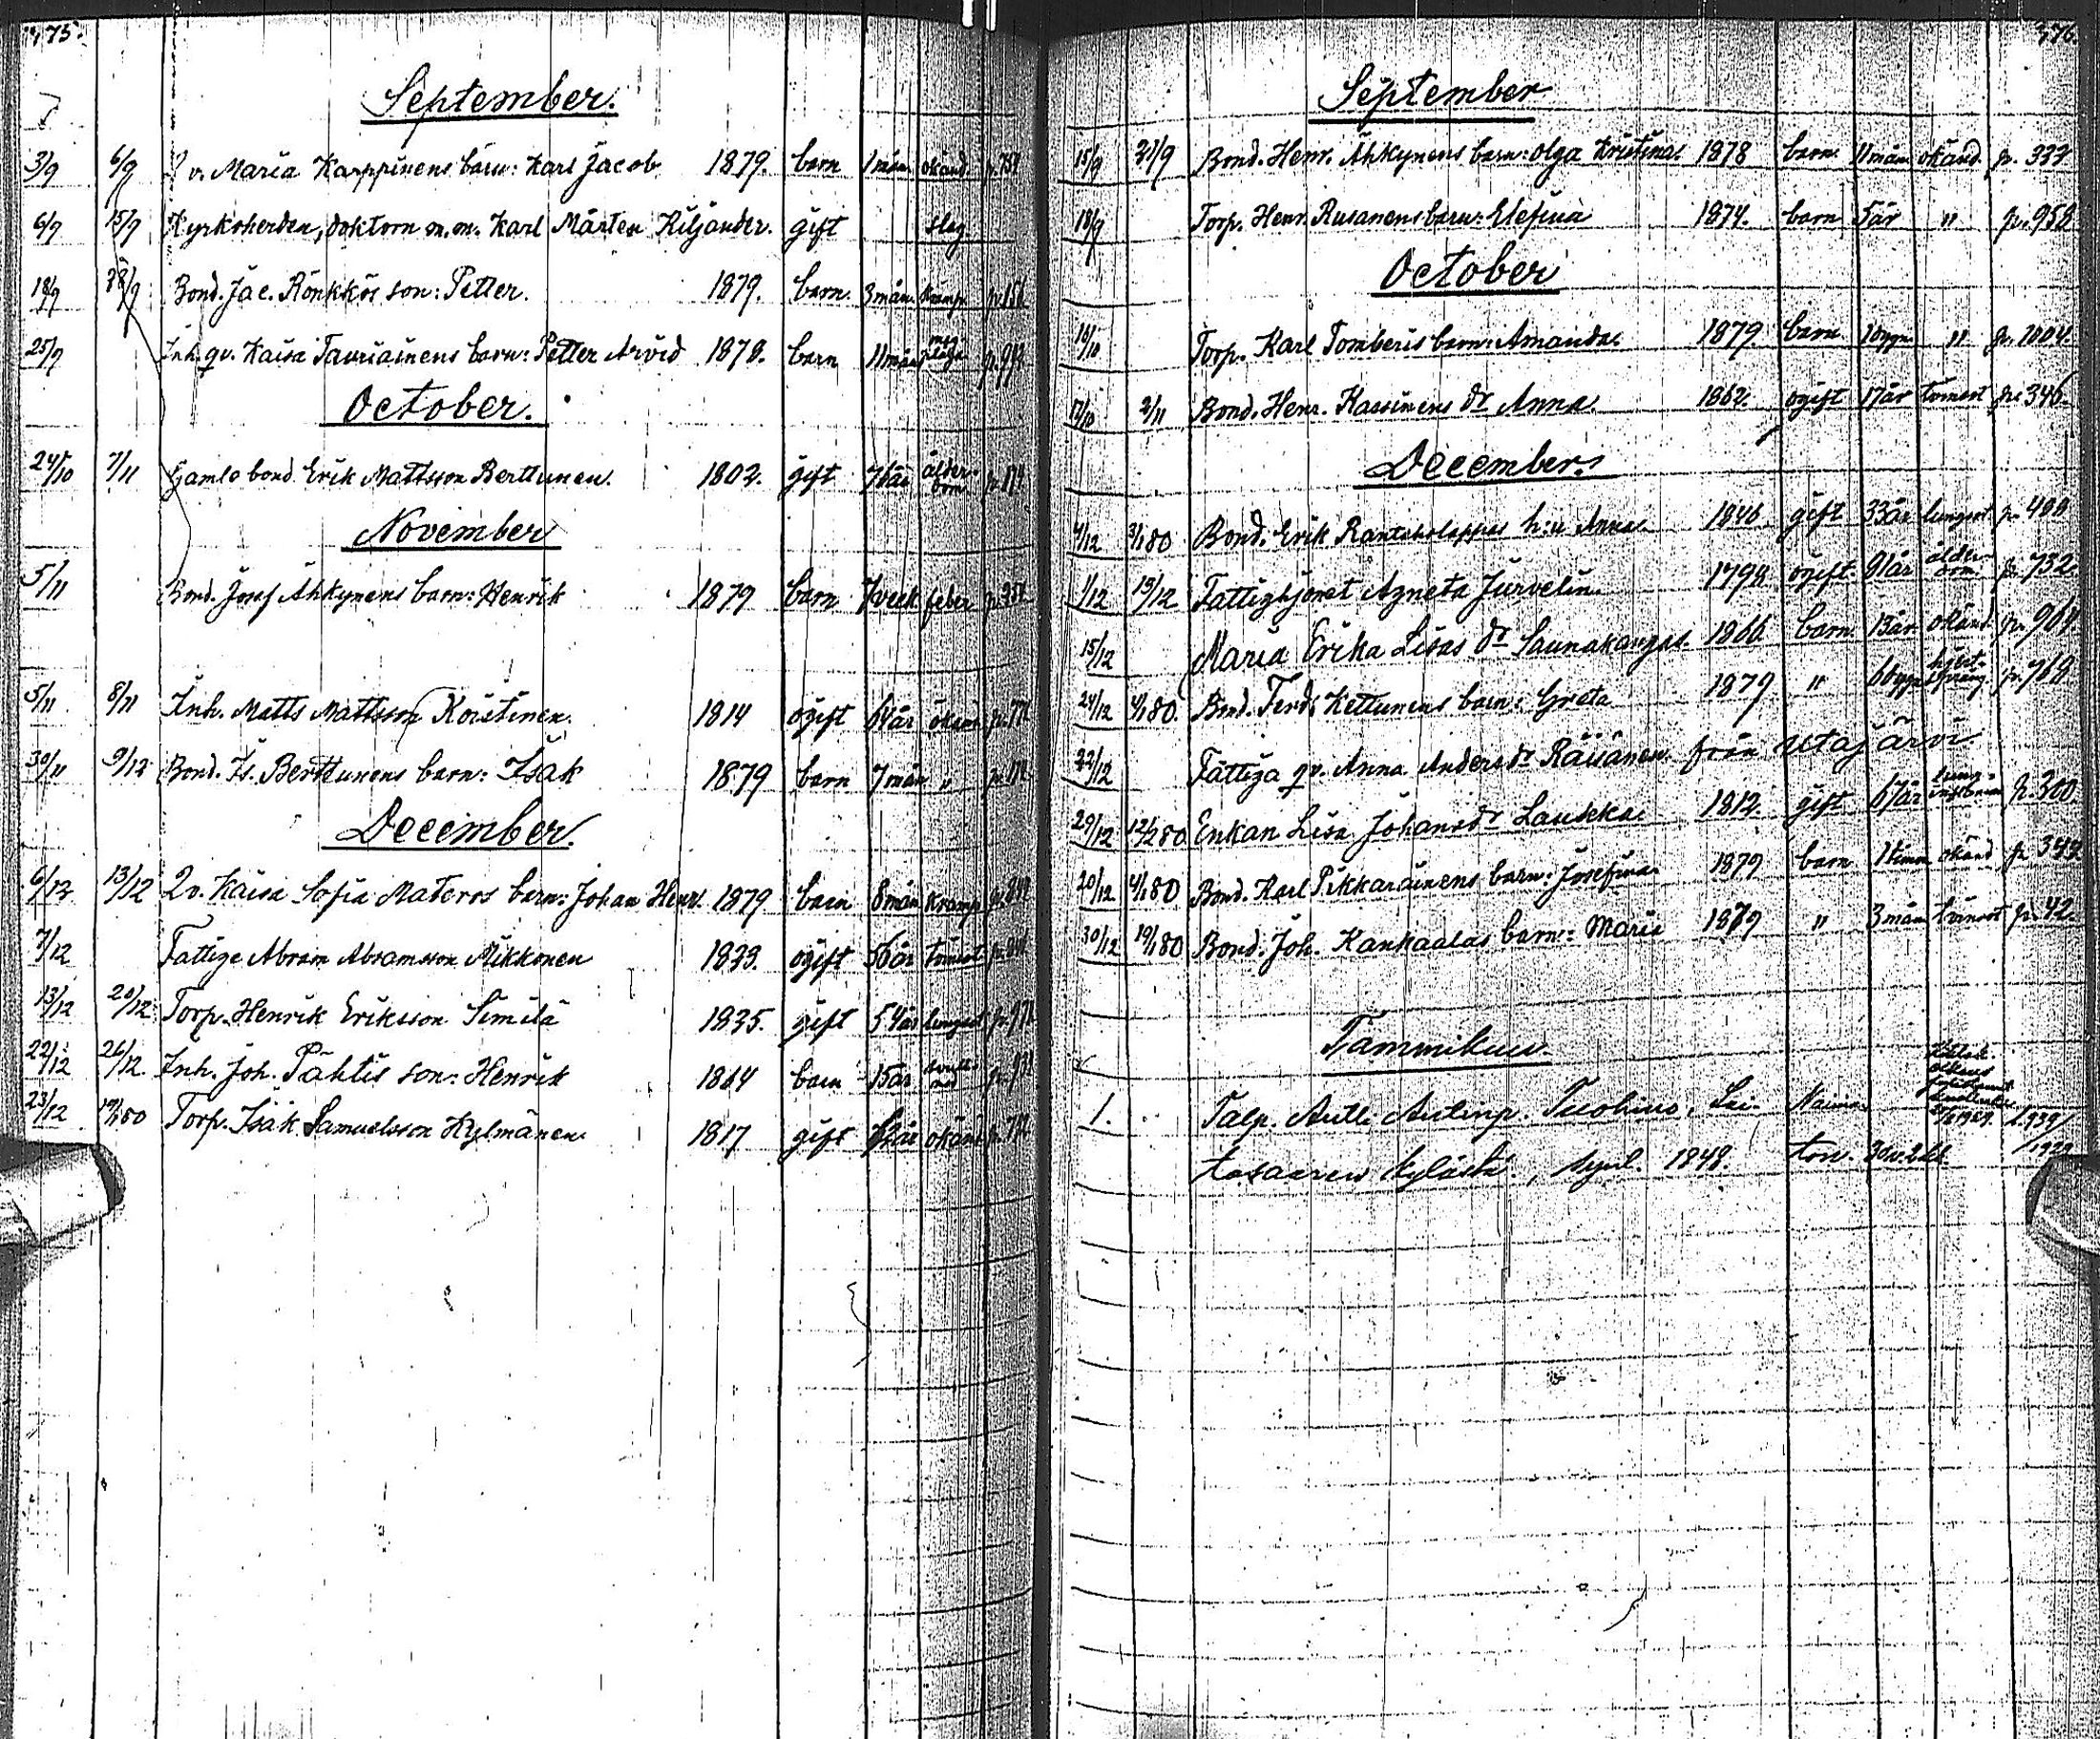 375.
September.
3/9 6/9 Qv. Maria Karppinens barn: Karl Jacob 1879. barn 1 mån okänd
6/9 15/9 Kyrkoherden, doktorn m.m. Karl Mårten Kiljander. gift slag.
18/9 28/9 Bond. Jac. Rönkkös son: Petter. 1879. barn. 3 mån. kramp
25/9 Inh. qv. Kaisa Tauriainens barn: Petter Arvid 1878. barn 11 mån
October.
24/10 7/11 Gamle bond. Erik Mattsson Berttunen. 1802. gift 76 år ålderdom
November
5/11 Bond. Josef Ähkynens barn: Henrik 1879 barn 7 veck feber
5/11 8/11 Inh. Matts Mattsson Koistinen. 1814 ogift 64 år okänd
30/11 9/12 Bond. Is. Berttunens barn: Isak 1879 barn 7 mån "
December.
6/12 13/12 Qv. Kaisa Sofia Materos barn: Johan Henr. 1879 barn 8 mån kramp
7/12 Fattige Abram Abramsson Mikkonen 1833. ogift 56 år
13/12 20/12 Torp. Henrik Eriksson Similä 1835. gift 54 år lungsot
22/12 26/12. Inh. Joh. Pähtis son: Henrik 1864 barn 15 år
23/12 Torp. Isak Samuelsson Kylmänen 1817 gift 62 år okänd
376.
September
15/9 21/9 Bond. Henr. Ähkynens barn: Olga Kristina. 1878 barn. 11 mån okänd. p. 333
18/9 Torp. Henr. Rusanens barn: Elefina 1874. barn 5 år " p. 958
October
16/10 Torp. Karl Tomberis barn: Amanda. 1879. barn " p. 1004.
17/10 2/11 Bond. Henr. Kassinens dr Anna. 1862. ogift 17 år p. 346
December.
4/12 Bond. Erik Rantakolappas h:u Anna 1846 gift 33 år lungsot p. 488
1/12 13/12 Fattighjonet Agneta Jurvelin. 1798 ogift. 81 år ålderdom p. 732.
15/12 Maria Erika Lisas dr Saunakangas. 1866 barn 13 år okänd. p. 969
24/12 Bond. Ferd. Kettunens barn: Greta 1879 " p. 768
22/12 Fattiga qv. Anna Andersdr Räisänen från Utajärvi.
29/12 Enkan Lisa Johansdr Lauseka 1812. gift 67 år p. 300.
20/12 Bond. Karl Pikkarainens barn: Josefina 1879 barn 1 timm okänd p. 343
30/12 Bond. Joh. Kankaalas barn: Maria 1879 " 3 mån p. 42.
Tammikuu.
1. Talp. Antti Antinp. Naima-
kylästä, synt. 1848. ton.